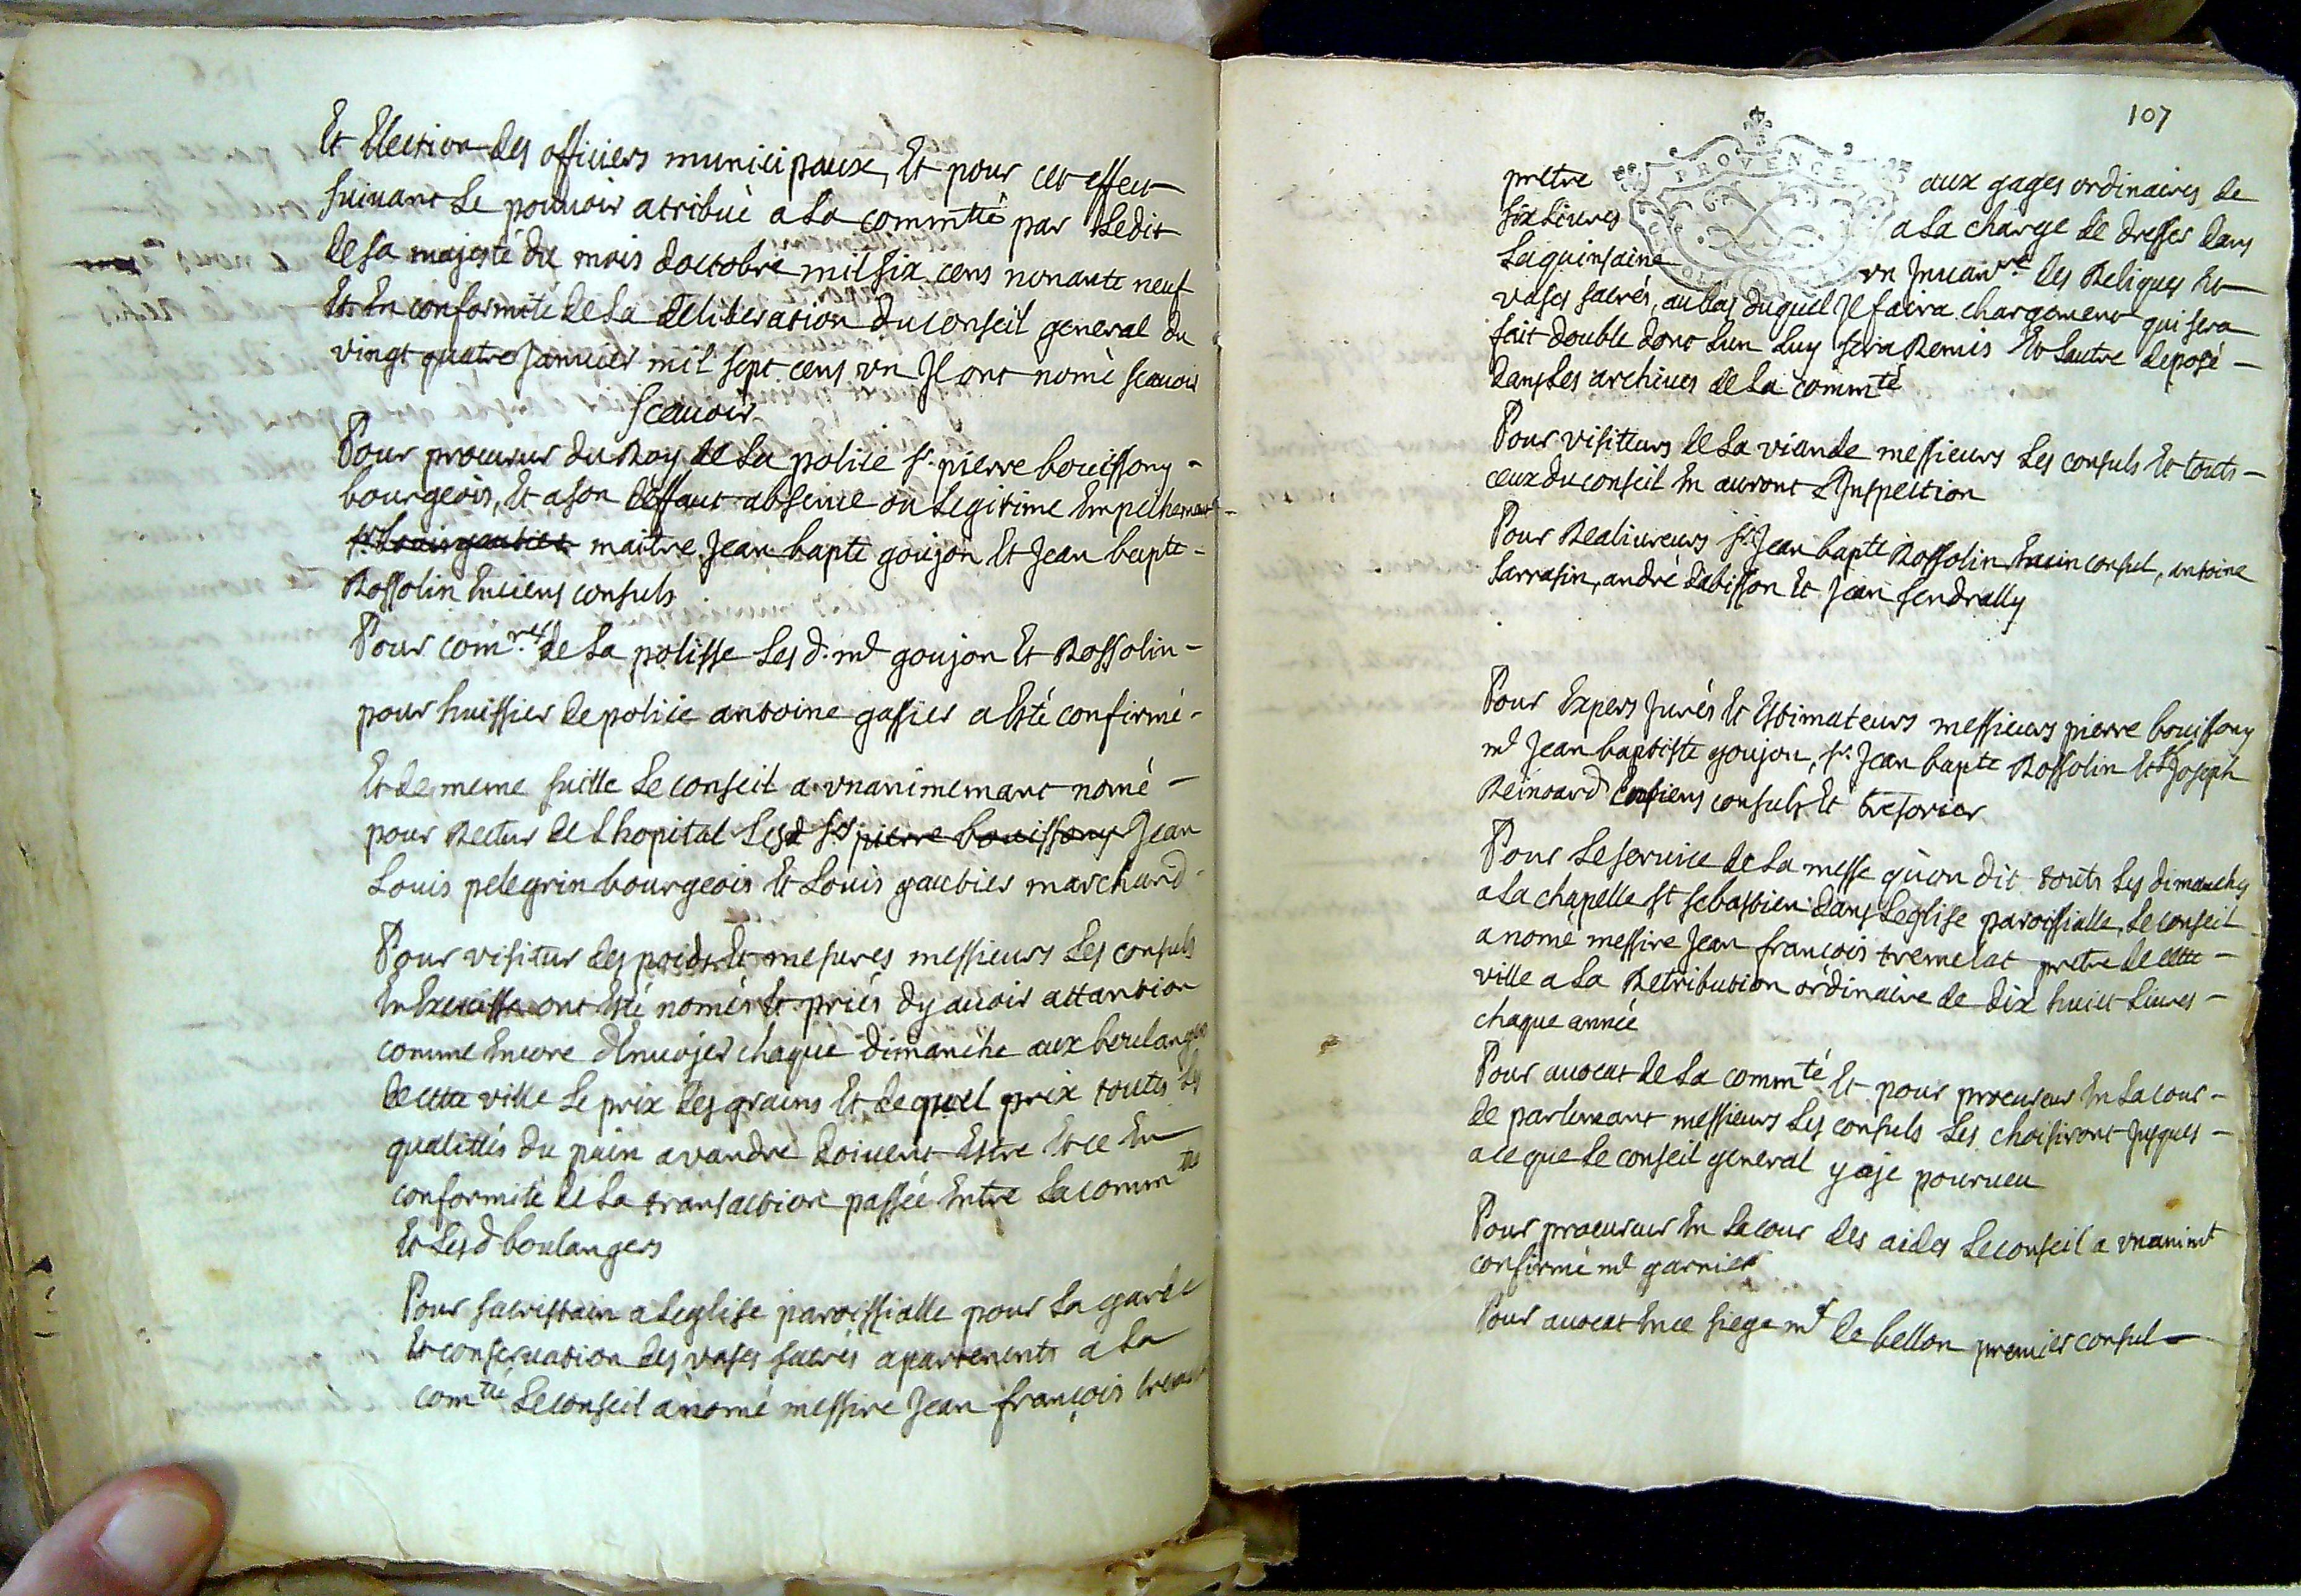 Et Election des officiers municipaux, Et pour cet effect
suivant Le pouvoir atribué a La commtté par Ledit
de sa majesté du mois d'octobre mil six cens nonante neuf
Et En conformité de La deliberation du conseil general du
vingt quatre Janvier mil sept cens vn Jl ont nomé scavoir
scavoir
Pour procureur du Roy de La police sr. pierre bouissony -
bourgeois, Et a son deffaut absence ou Legitime Empechement -
sr Louis gautier maitre Jean bapte goujon Et Jean bapte -
Rossolin Enciens consuls
Pour comres de La polisse Les d. me goujon Et Rossolin -
pour huissier de police antoine gassier a Esté confirmé -
Et de meme suitte Le conseil a vnanimemant nomé -
pour Rectur de L hopital Lesd srs pierre bouissony Jean
Louis pelegrin bourgeois Et Louis gautier marchand -
Pour visitur des poids Et mesures messieurs Les consuls
En Exercisse ont Esté només Et priés dy avoir attantion
comme Encore d'Envojer chaque dimanche aux boulangers
de cette ville Le prix des grains Et de quel prix touts Les
qualittés du pain a vandre doivent Estre Et ce En
conformité de La transaction passée Entre La commtté
Et Lesd boulangers
Pour sacristain a Leglise paroissialle pour La garde
Et conservation des vases sacrés apartenents a La
comtté Le conseil a nomé messire Jean françois
107
PROVENCE
pretre aux gages ordinaires de
six Livres a La charge de dresser dans
La quinsaine vn Jnvanre des Reliques Et
vases sacrés, au bas duquel Jl faira chargement qui sera
fait double dont Lun Luy sera Remis Et Lautre deposé -
dans Les archives de La commté
Pour visitturs de La viande messieurs Les consuls Et touts -
ceux du conseil En auront L'Jnspection
Pour Realivreurs sr. Jean bapte Rossolin Encien consul, antoine
sarrasin, andré dabisson Et Jean sendrally
Pour Expers Jurés Et Estimateurs messieurs pierre bouissony
me Jean baptiste goujon, sr. Jean bapte Rossolin Et sr Joseph
Reinoard Enciens consuls Et tresorier
Pour Le service de La messe qu'on dit touts Les dimanches
a La chapelle st sebastien dans Leglise paroissialle, Le conseil
a nomé messire Jean françois tremelat pretre de cette -
ville a La Retribution ordinaire de dix huict Livres -
chaque année
Pour avocat de La commté Et pour procureur En La cour -
de parlemant messieurs Les consuls Les choisiront Jusques -
a ce que Le conseil general y aje pourveu
Pour procureur En La cour des aides Le conseil a vnanimt
confirmé me garnier
Pour avocat En ce siege mr de bellon premier consul